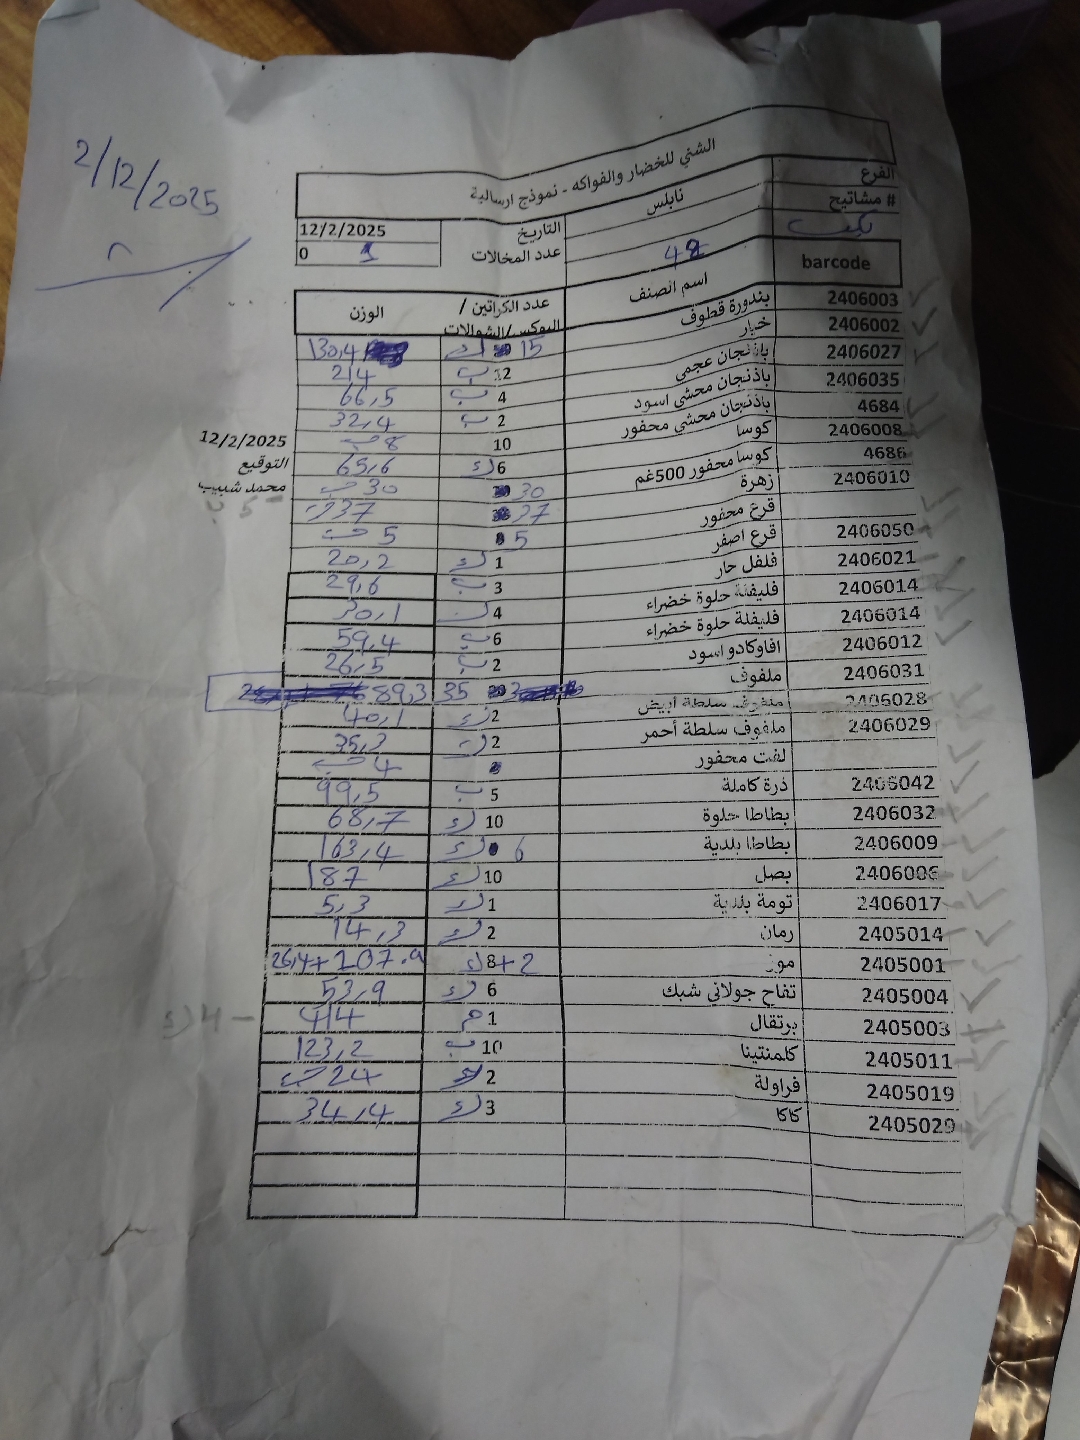 2/12/2025
الشني للخضار والفواكه - نموذج ارسالية
الفرع نابلس التاريخ 12/2/2025
# مشاتيح 42 عدد المخالات 0 1
barcode اسم الصنف عدد الكراتين / البوكس/الشوالات الوزن
2406003 بندورة قطوف 15 ك 130,4
2406002 خيار 12 ب 214
2406027 باذنجان عجمي 4 ب 66,5
2406035 باذنجان محشي اسود 2 ب 32,4
4684 باذنجان محشي محفور 10 8 ب
2406008 كوسا 6 ك 65,6
4686 كوسا محفور 500غم 30 30 ب
2406010 زهرة 37 37 ب
قرع محفور 5 5 ب
2406050 قرع اصفر 1 ك 20,2
2406021 فلفل حار 3 ب 29,6
2406014 فليفلة حلوة خضراء 4 30,1
2406014 فليفلة حلوة خضراء 6 ب 59,4
2406012 افاوكادو اسود 2 ب 26,5
2406031 ملفوف 35 89,3
2406028 ملفوف سلطة ابيض 2 ك 40,1
2406029 ملفوف سلطة أحمر 2 35,3
لفت محفور 4 ب
2406042 ذرة كاملة 5 ب 99,5
2406032 بطاطا حلوة 10 ك 68,7
2406009 بطاطا بلدية 6 ك 163,4
2406006 بصل 10 ك 187
2406017 تومة بلدية 1 ك 5,3
2405014 رمان 2 ك 14,3
2405001 موز 8+2 ك 26,4+107.9
2405004 تفاح جولاني شبك 6 ك 53,9
2405003 برتقال 1 م 414
2405011 كلمنتينا 10 ب 123,2
2405019 فراولة 2 24 ب
2405029 كاكا 3 ك 34,4
12/2/2025
التوقيع
محمد شبيب
5 -
4 -